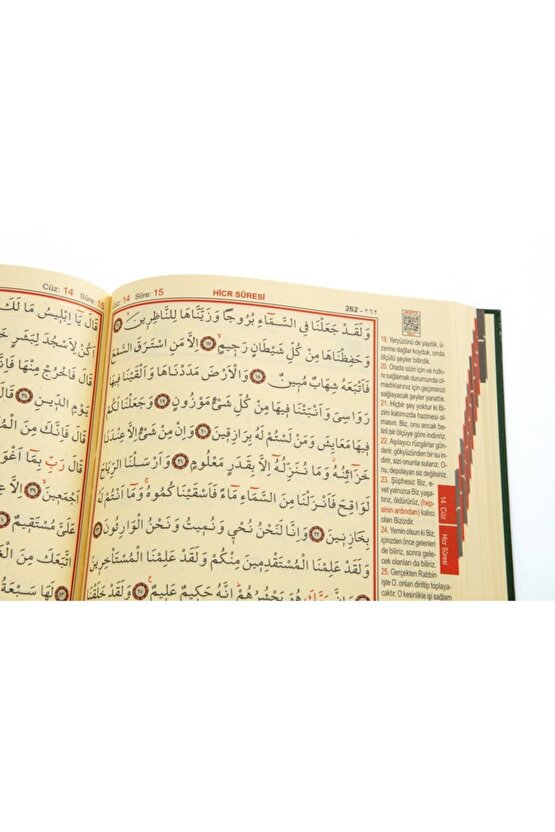 Cüz: 14 Sûre: 15 HİCR SÛRESİ 262 - ٢٦٢
وَلَقَدْ جَعَلْنَا فِي السَّمَاءِ بُرُوجًا وَزَيَّنَّاهَا لِلنَّاظِرِينَ ﴿١٦﴾
وَحَفِظْنَاهَا مِنْ كُلِّ شَيْطَانٍ رَجِيمٍ ﴿١٧﴾ اِلَّا مَنِ اسْتَرَقَ السَّمْعَ
فَاَتْبَعَهُ شِهَابٌ مُبِينٌ ﴿١٨﴾ وَالْاَرْضَ مَدَدْنَاهَا وَاَلْقَيْنَا فِيهَا
رَوَاسِيَ وَاَنْبَتْنَا فِيهَا مِنْ كُلِّ شَيْءٍ مَوْزُونٍ ﴿١٩﴾ وَجَعَلْنَا لَكُمْ
فِيهَا مَعَايِشَ وَمَنْ لَسْتُمْ لَهُ بِرَازِقِينَ ﴿٢٠﴾ وَاِنْ مِنْ شَيْءٍ اِلَّا عِنْدَنَا
خَزَائِنُهُ وَمَا نُنَزِّلُهُ اِلَّا بِقَدَرٍ مَعْلُومٍ ﴿٢١﴾ وَاَرْسَلْنَا الرِّيَاحَ
لَوَاقِحَ فَاَنْزَلْنَا مِنَ السَّمَاءِ مَاءً فَاَسْقَيْنَاكُمُوهُ وَمَا اَنْتُمْ لَهُ
بِخَازِنِينَ ﴿٢٢﴾ وَاِنَّا لَنَحْنُ نُحْيِي وَنُمِيتُ وَنَحْنُ الْوَارِثُونَ ﴿٢٣﴾
وَلَقَدْ عَلِمْنَا الْمُسْتَقْدِمِينَ مِنْكُمْ وَلَقَدْ عَلِمْنَا الْمُسْتَأْخِرِينَ
وَاِنَّ رَبَّكَ هُوَ يَحْشُرُهُمْ اِنَّهُ حَكِيمٌ عَلِيمٌ ﴿٢٥﴾ وَلَقَدْ خَلَقْنَا
19. Yeryüzünü de yaydık, ü-
zerine dağlar koyduk, onda
ölçülü şeyler bitirdik.
20. Orada sizin için ve rızkı-
nı sağlamak durumunda ol-
madıklarınız için geçiminizi
sağlayacak şeyler yarattık.
21. Hiçbir şey yoktur ki Bi-
zim katımızda hazinesi ol-
masın, Biz, onu ancak be-
lirli bir ölçüye göre indiririz.
22. Aşılayıcı rüzgârlar gön-
derir, gökyüzünden bir su in-
dirir, sizi onunla sularız. O-
nu, depolayan siz değilsiniz.
23. Şüphesiz Biz, e-
vet yalnızca Biz yaşa-
tırız, öldürürüz, (hep-
sinin ardından) kalıcı
olan Bizizdir.
24. Yemin olsun ki Biz,
içinizden önce gelenleri
de biliriz, sonra gele-
cek olanları da biliriz.
25. Gerçekten Rabbin
işte O, onları diriltip toplaya-
caktır. O kesinlikle işi sağlam
14. Cüz
Hicr Sûresi
Cüz: 14 Sûre: 15
قَالَ يَا اِبْلِيسُ مَا لَكَ
اَكُنْ لِاَسْجُدَ لِبَشَرٍ
قَالَ فَاخْرُجْ مِنْهَا فَاِنَّكَ
يَوْمِ الدِّينِ ﴿٣٥﴾ قَالَ
قَالَ فَاِنَّكَ مِنَ الْمُنْظَرِينَ
قَالَ رَبِّ بِمَا اَغْوَيْتَنِي
اَجْمَعِينَ ﴿٣٩﴾ اِلَّا
عَلَيَّ مُسْتَقِيمٌ ﴿٤١﴾
اتَّبَعَكَ مِنَ الْغَاوِينَ
لَهَا سَبْعَةُ